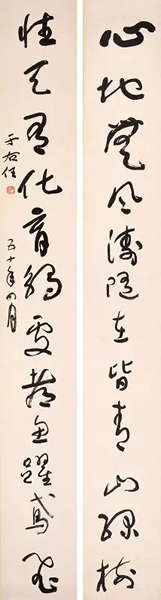 心地無風濤隨在皆青山綠樹
性天有化育觸處都魚躍鳶飛
五十年四月
于右任